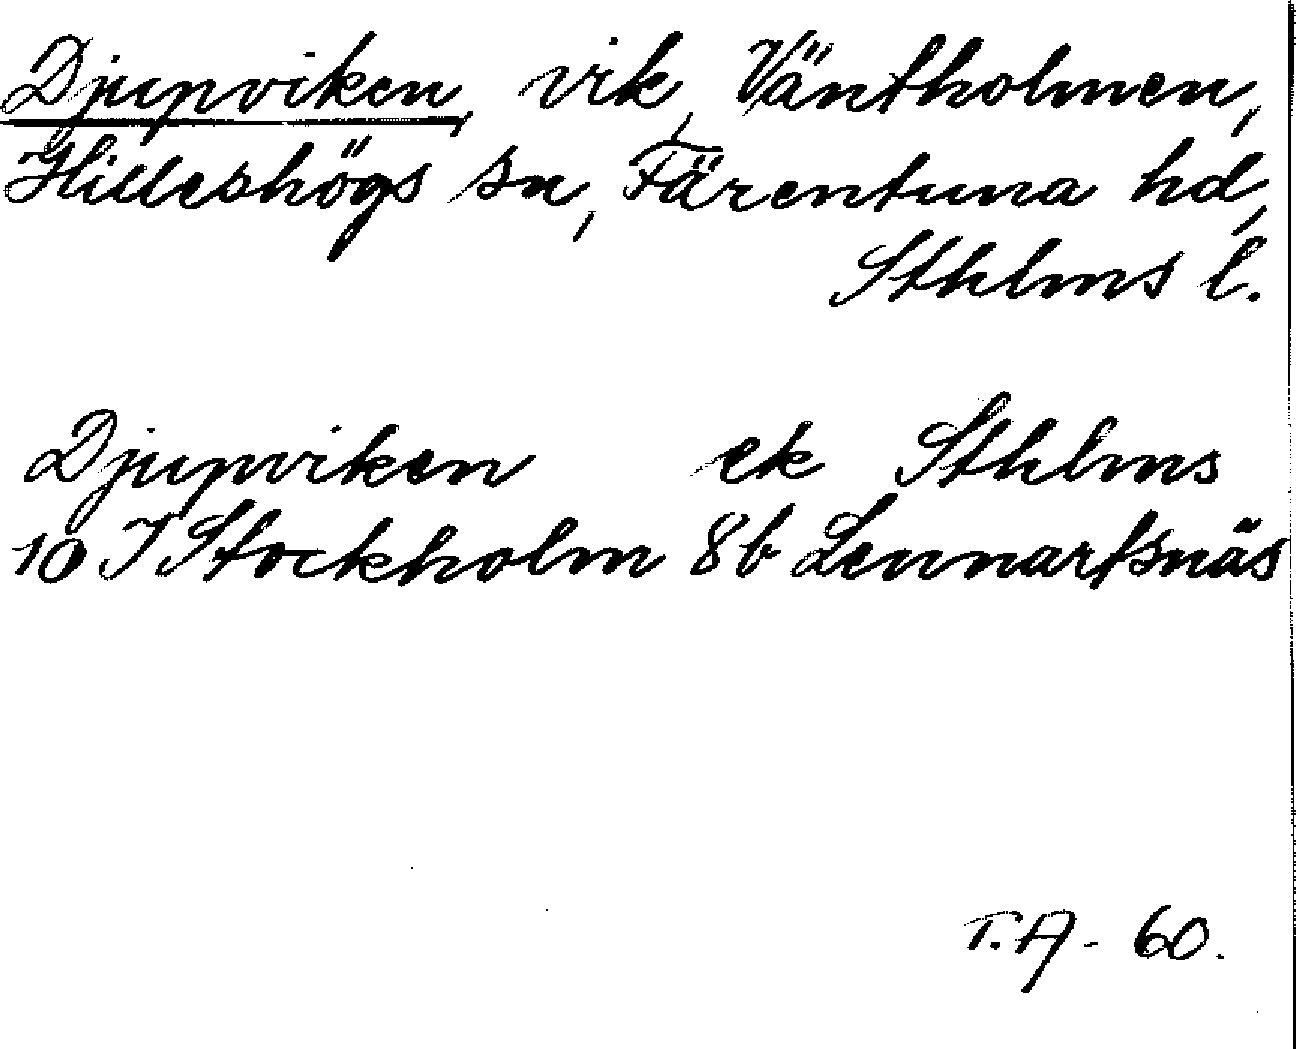 Djupviken, vik, Väntholmen,
Hilleshögs sn, Färentuna hd,
Sthlms l.
Djupviken ek Sthlms
10 I Stockholm 8b Lennartsnäs
T.A- 60.